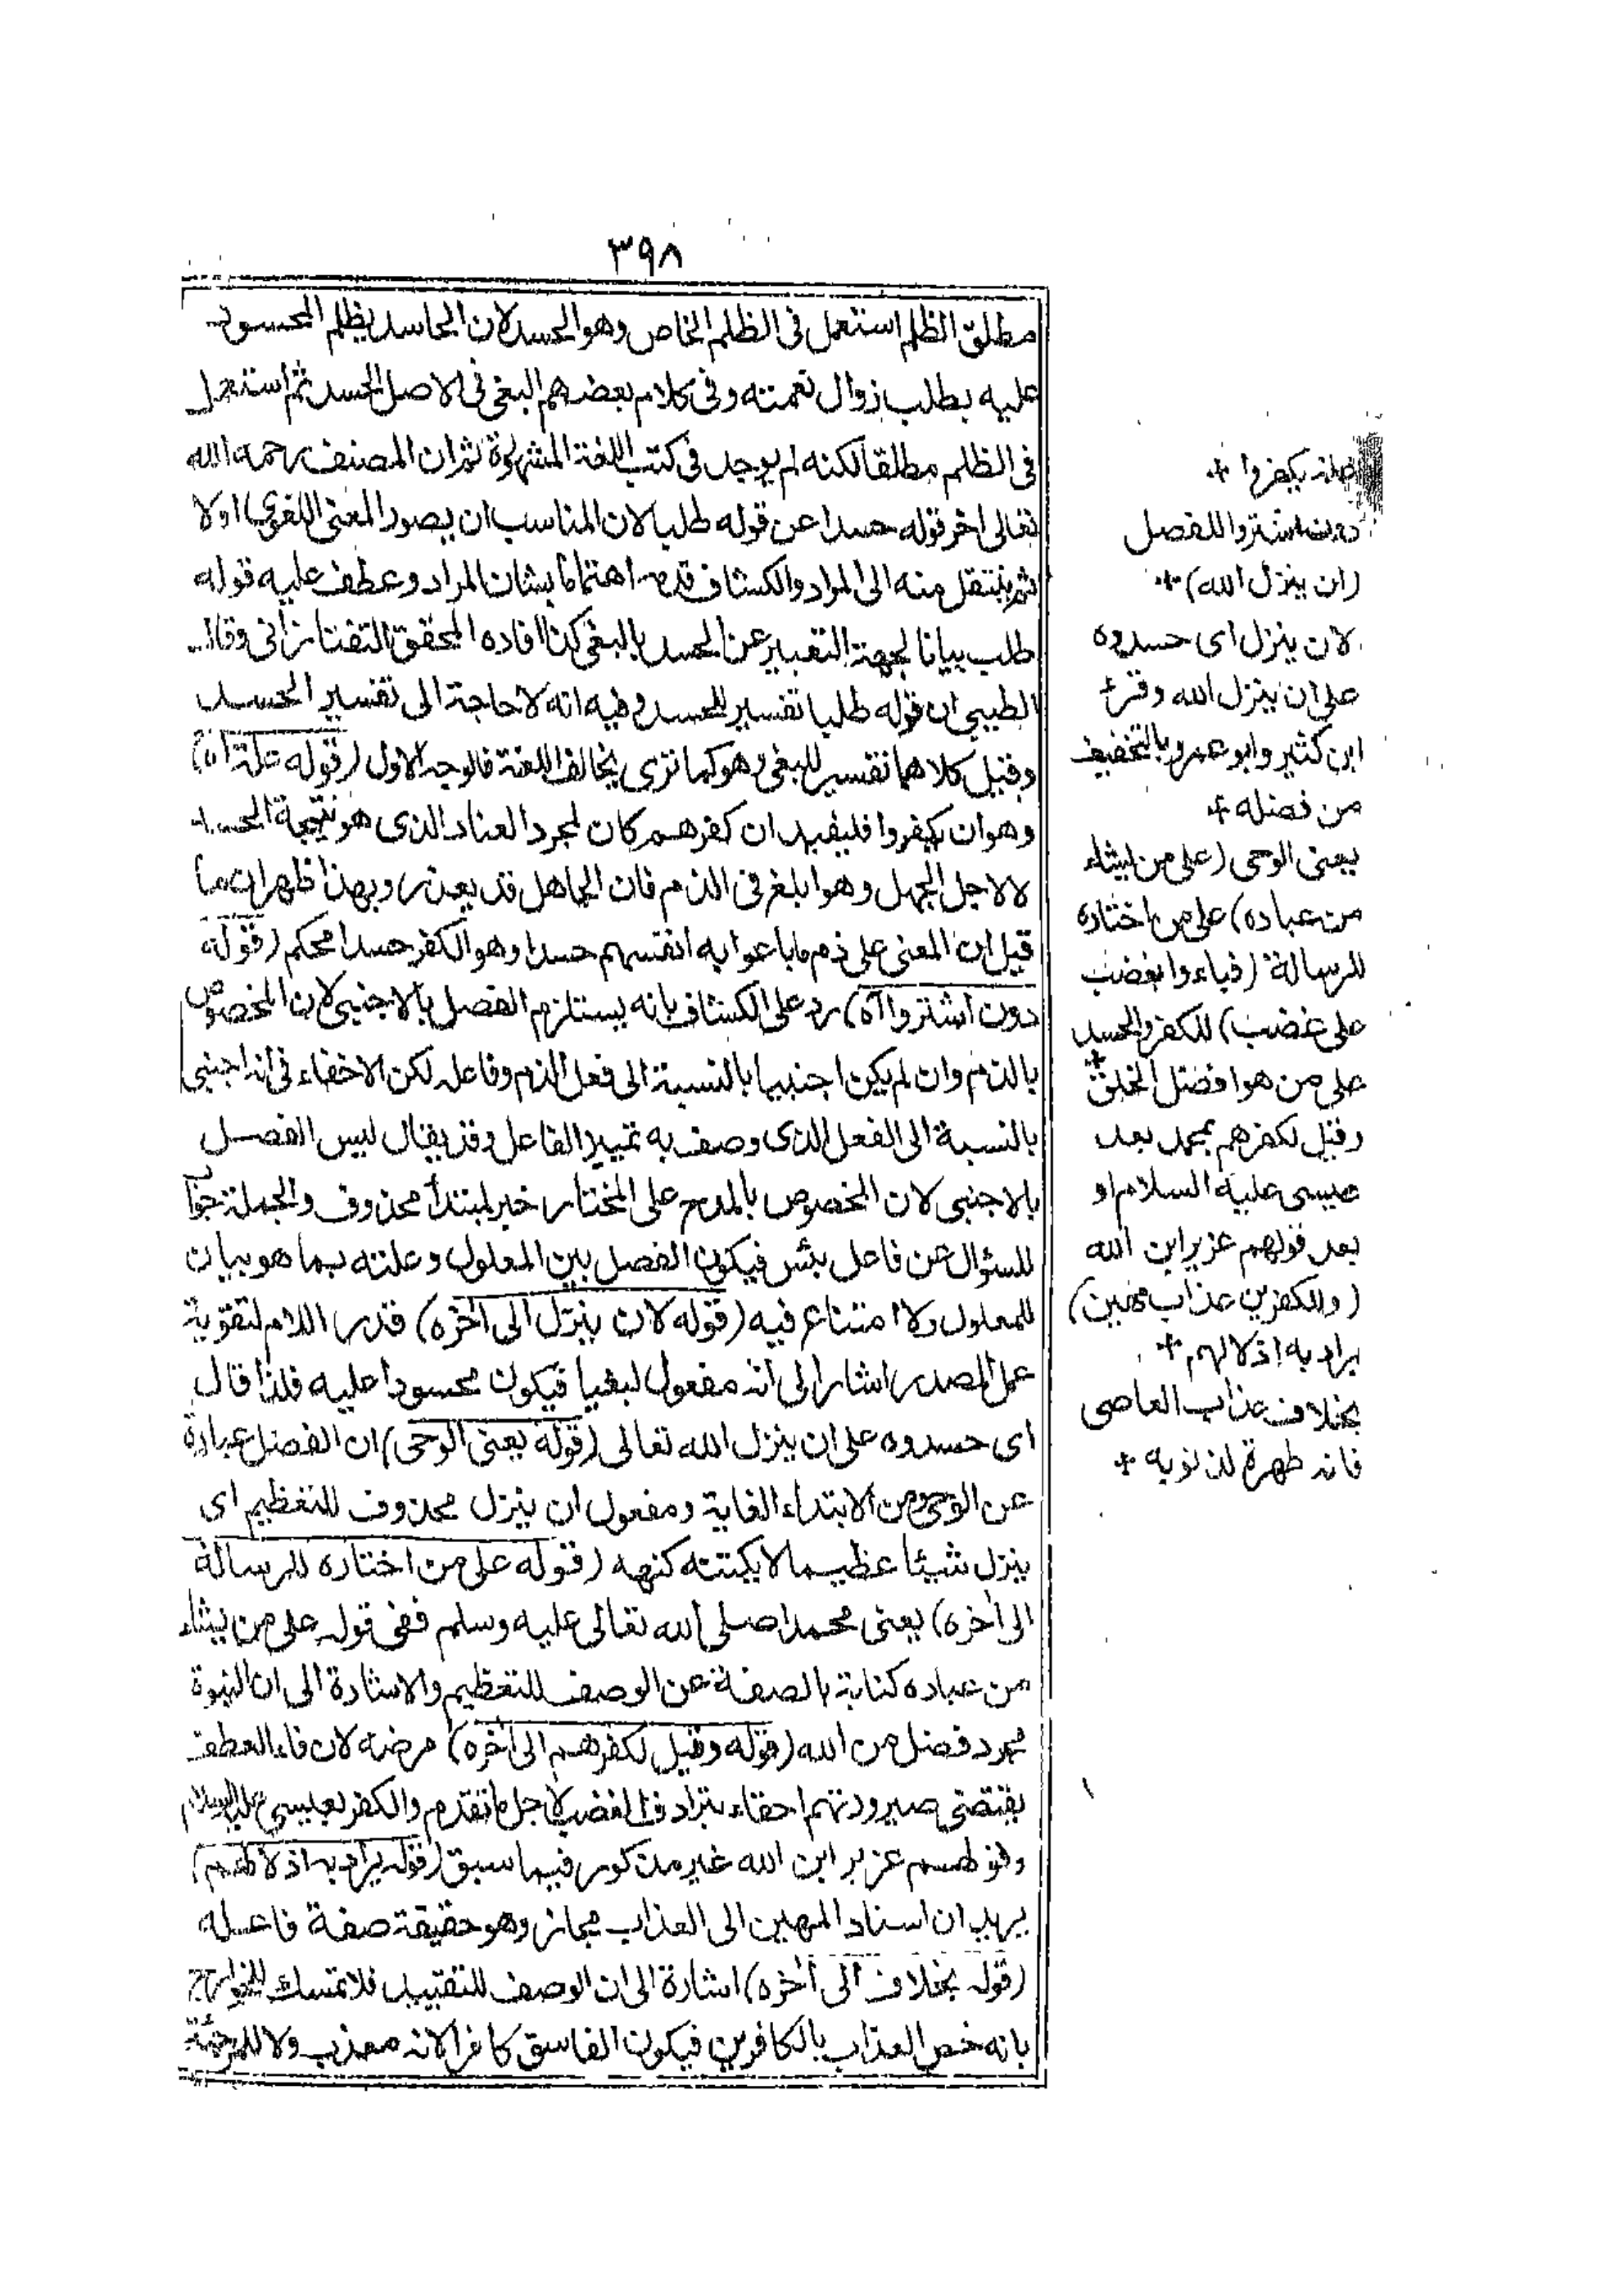 ٣٩٨
مطلق الظلم استعمل فى الظلم الخاص وهو الحسد لان الحاسد يظلم المحسود
عليه بطلب زوال نعمته وفى كلام بعضهم البغى فى الاصل الحسد ثم استعمل
فى الظلم مطلقا لكنه لم يوجد فى كتب اللغة المشهورة ثم ان المصنف رحمه الله
تعالى اخر قوله حسدا عن قوله طلبا لان المناسب ان يصور المعنى اللغوى اولا
ثم ينتقل منه الى المراد والكشاف قدمه اهتماما بشان المراد وعطف عليه قوله
طلب بيانا لجهة التعبير عن الحسد بالبغى كذا افاده المحقق التفتازانى وقال
الطيبى ان قوله طلبا تفسير للحسد وفيه انه لا حاجة الى تفسير الحسد
وقيل كلاهما تفسير للبغى وهو كما ترى يخالف اللغة فالوجه الاول (قوله علة ان)
وهو ان يكفروا فليفيد ان كفرهم كان لمجرد العناد الذى هو نتيجة الحسد
لا لاجل الجهل وهو ابلغ فى الذم فان الجاهل قد يعذر وبهذا ظهر ان ما
قيل ان المعنى على ذم ما باعوا به انفسهم حسدا وهو الكفر حسدا محكم (قوله
دون اشتروا آه) رد على الكشاف بانه يستلزم الفصل بالاجنبى لان المخصوص
بالذم وان لم يكن اجنبيا بالنسبة الى فعل الذم وفاعله لكن لاخفاء فى انه اجنبى
بالنسبة الى الفعل الذى وصف به تمييز الفاعل وقد يقال ليس الفصل
بالاجنبى لان المخصوص بالمدح على المختار خبر لمبتدأ محذوف والجملة جواب
للسؤال عن فاعل بئس فيكون الفصل بين المعلول وعلته بما هو بيان
للمعلول ولا امتناع فيه (قوله لان ينزل الى آخره) قدر اللام لتقوية
عمل المصدر اشارا الى انه مفعول لبغيا فيكون محسودا عليه فلذا قال
اى حسدوه على ان ينزل الله تعالى (قوله يعنى الوحى) ان الفضل عبارة
عن الوحى ومن لابتداء الغاية ومفعول ان ينزل محذوف للتعظيم اى
ينزل شيئا عظيما لا يكتنه كنهه (قوله على من اختاره للرسالة
الى آخره) يعنى محمدا صلى الله تعالى عليه وسلم ففى قوله على من يشاء
من عباده كناية بالصفة عن الوصف للتعظيم والاشارة الى ان النبوة
مجرد فضل من الله (قوله وقيل لكفرهم الى آخره) مرضه لان فاء العطف
يقتضى صيرورتهم احقاء بترادف الغضب لاجل ما تقدم والكفر بعيسى عليه السلام
وقولهم عزير ابن الله غير مذكور فيما سبق (قوله يراد به اذلالهم)
يريد ان اسناد المهين الى العذاب مجاز وهو حقيقة صفة فاعله
(قوله بخلاف الى آخره) اشارة الى ان الوصف للتقييد فلا تمسك للخوارج
بانه خص العذاب بالكافرين فيكون الفاسق كافرا لانه معذب ولا للمرجئة
علة يكفروا +
دون اشتروا للفصل
(ان ينزل الله) +
لان ينزل اى حسدوه
على ان ينزل الله وقرأ
ابن كثير وابو عمرو بالتخفيف
من فضله +
يعنى الوحى (على من يشاء
من عباده) على من اختاره
للرسالة (فباءوا بغضب
على غضب) للكفر والحسد
على من هو افضل الخلق +
وقيل لكفرهم بمحمد بعد
عيسى عليه السلام او
بعد قولهم عزير ابن الله
(وللكفرين عذاب مهين)
يراد به اذلالهم +
بخلاف عذاب العاصى
فانه طهرة لذنوبه +